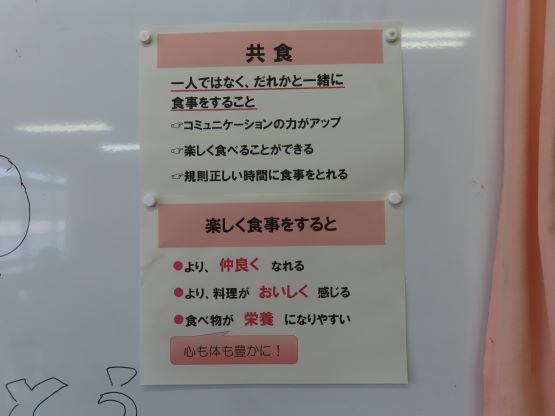 共食
一人ではなく、だれかと一緒に
食事をすること
☞コミュニケーションの力がアップ
☞楽しく食べることができる
☞規則正しい時間に食事をとれる
楽しく食事をすると
●より、仲良く なれる
●より、料理が おいしく 感じる
●食べ物が 栄養 になりやすい
心も体も豊かに！
とう